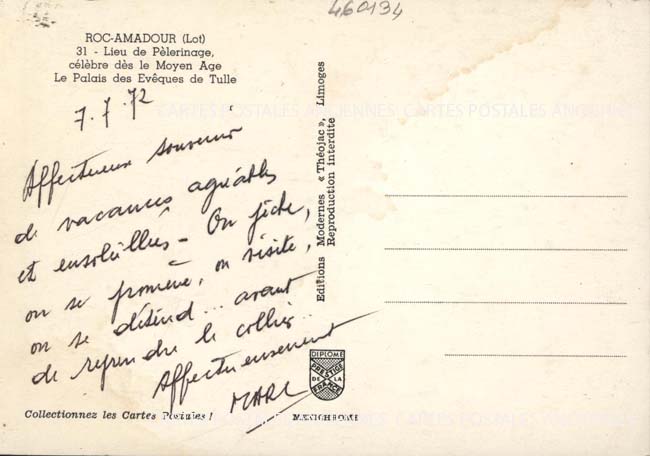 460134
ROC-AMADOUR (Lot)
31 - Lieu de Pèlerinage,
célèbre dès le Moyen Age
Le Palais des Evêques de Tulle
7.7.72
CARTES POSTALES ANCIENNES CARTES POSTALES ANCIENNES
Affectueux souvenir
de vacances agréables
et ensoleillées - On pêche,
on se promène, on visite,
on se détend... avant
de reprendre le collier...
Affectueusement
MARC
Editions Modernes « Théojac », Limoges
Reproduction interdite
DIPLOME
PRESTIGE
DE LA
FRANCE
MEXICHROME
Collectionnez les Cartes Postales !